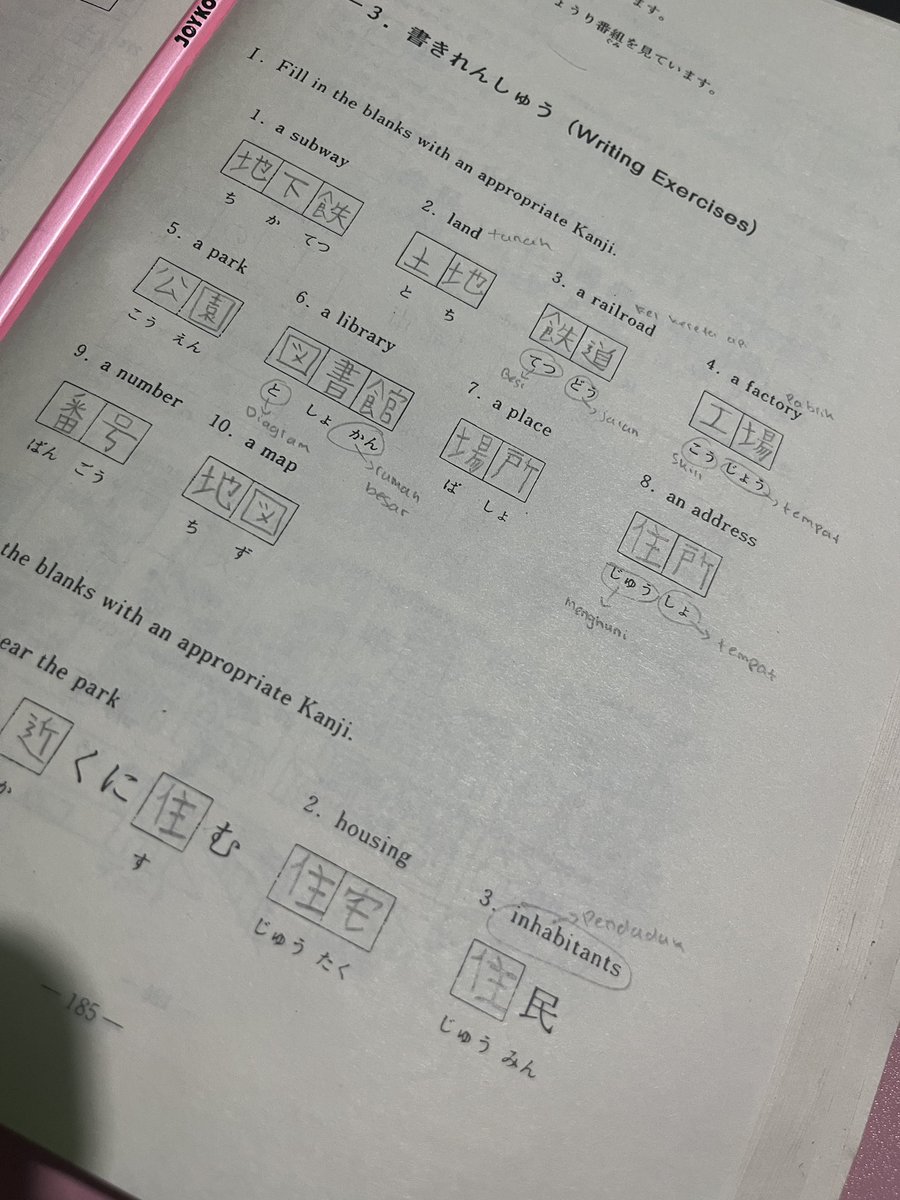 JOYKO
ます。
ょうり番組を見ています。
ぐみ
－3．書きれんしゅう（Writing Exercises）
I. Fill in the blanks with an appropriate Kanji.
1. a subway
地下鉄
ち か てつ
2. land tanah
土地
と ち
3. a railroad
鉄道
てつ どう
Besi jalan
4. a factory Pabrik
工場
こう じょう
skill tempat
5. a park
公園
こう えん
6. a library
図書館
と しょ かん
Diagram rumah
besar
7. a place
場所
ば しょ
8. an address
住所
じゅう しょ
menghuni tempat
9. a number
番号
ばん ごう
10. a map
地図
ち ず
the blanks with an appropriate Kanji.
ear the park
近くに住む
か す
2. housing
住宅
じゅう たく
3. inhabitants Penduduk
住民
じゅう みん
－185－